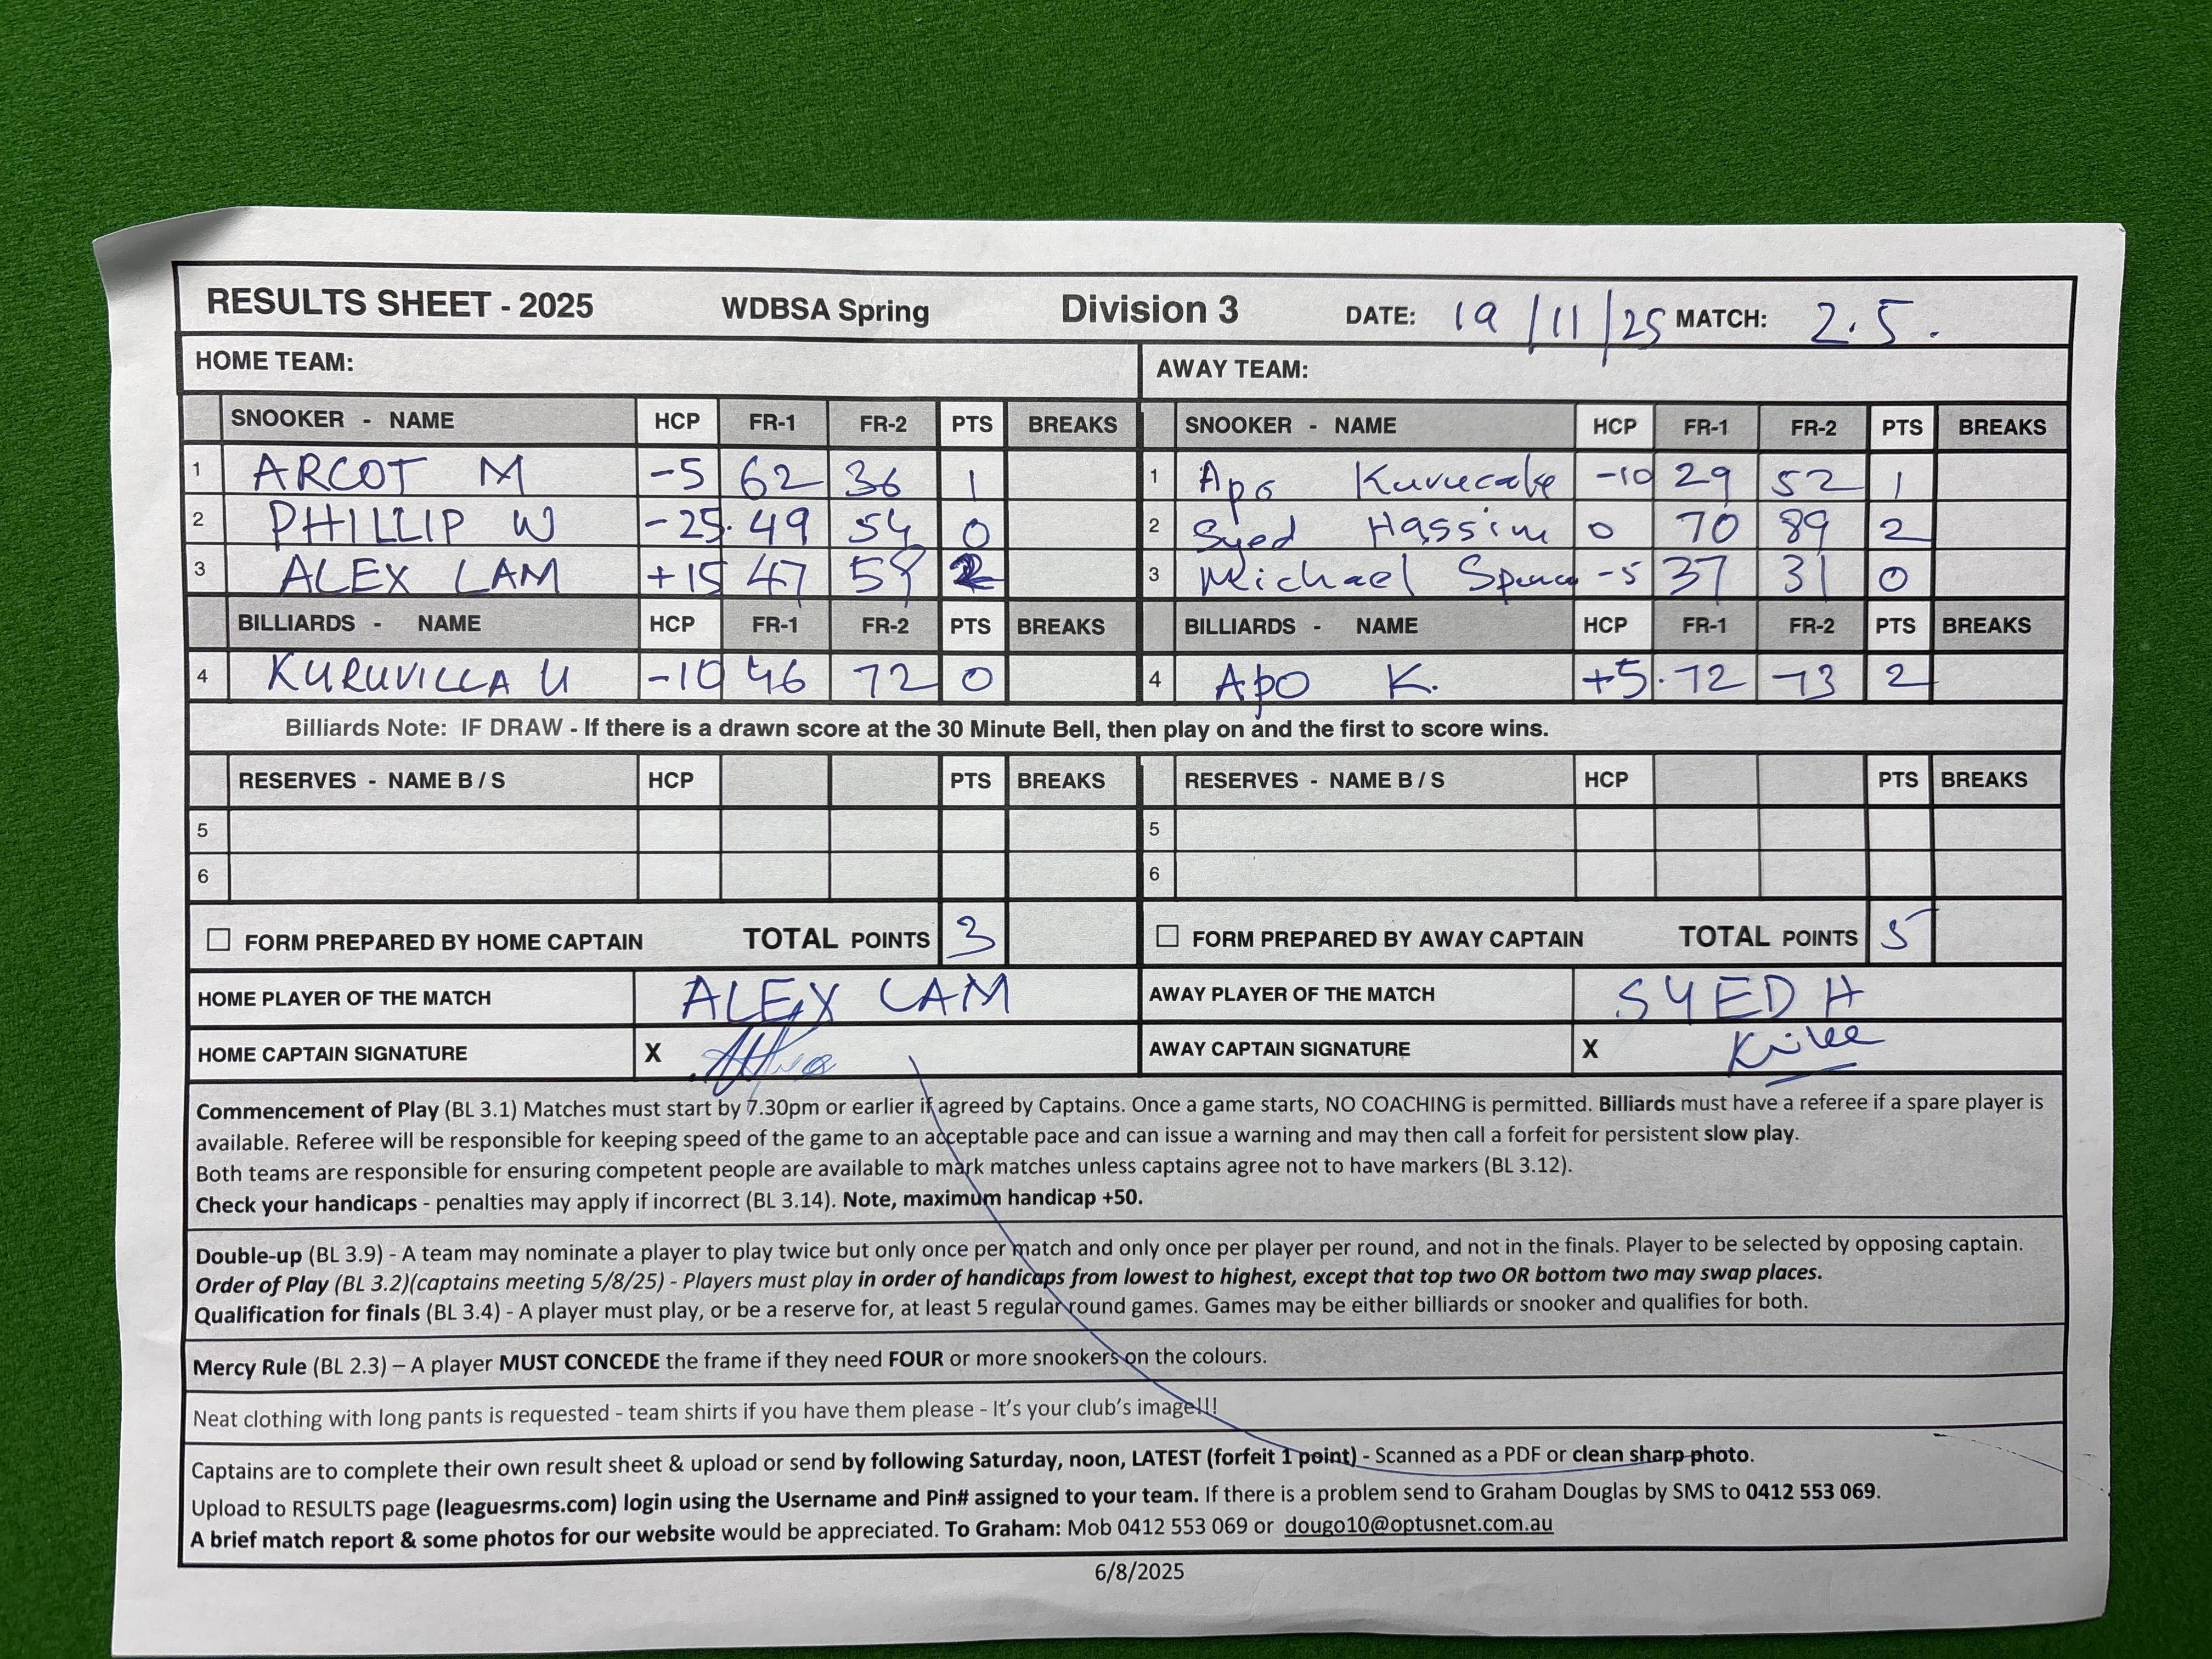 RESULTS SHEET - 2025 WDBSA Spring Division 3 DATE: 19/11/25 MATCH: 2.5.
HOME TEAM: AWAY TEAM:
SNOOKER - NAME HCP FR-1 FR-2 PTS BREAKS SNOOKER - NAME HCP FR-1 FR-2 PTS BREAKS
1 ARCOT M -5 62 36 1 1 Apo -10 29 52 1
2 PHILLIP W -25 49 54 0 2 Syed Hassim 0 70 89 2
3 ALEX LAM +15 47 59 2 3 Michael -5 37 31 0
BILLIARDS - NAME HCP FR-1 FR-2 PTS BREAKS BILLIARDS - NAME HCP FR-1 FR-2 PTS BREAKS
4 KURUVILLA U -10 46 72 0 4 Apo K. +5 72 73 2
Billiards Note: IF DRAW - If there is a drawn score at the 30 Minute Bell, then play on and the first to score wins.
RESERVES - NAME B / S HCP PTS BREAKS RESERVES - NAME B / S HCP PTS BREAKS
5 5
6 6
FORM PREPARED BY HOME CAPTAIN TOTAL POINTS 3 FORM PREPARED BY AWAY CAPTAIN TOTAL POINTS 5
HOME PLAYER OF THE MATCH ALEX LAM AWAY PLAYER OF THE MATCH SYED H
HOME CAPTAIN SIGNATURE X AWAY CAPTAIN SIGNATURE X
Commencement of Play (BL 3.1) Matches must start by 7.30pm or earlier if agreed by Captains. Once a game starts, NO COACHING is permitted. Billiards must have a referee if a spare player is
available. Referee will be responsible for keeping speed of the game to an acceptable pace and can issue a warning and may then call a forfeit for persistent slow play.
Both teams are responsible for ensuring competent people are available to mark matches unless captains agree not to have markers (BL 3.12).
Check your handicaps - penalties may apply if incorrect (BL 3.14). Note, maximum handicap +50.
Double-up (BL 3.9) - A team may nominate a player to play twice but only once per match and only once per player per round, and not in the finals. Player to be selected by opposing captain.
Order of Play (BL 3.2)(captains meeting 5/8/25) - Players must play in order of handicaps from lowest to highest, except that top two OR bottom two may swap places.
Qualification for finals (BL 3.4) - A player must play, or be a reserve for, at least 5 regular round games. Games may be either billiards or snooker and qualifies for both.
Mercy Rule (BL 2.3) – A player MUST CONCEDE the frame if they need FOUR or more snookers on the colours.
Neat clothing with long pants is requested - team shirts if you have them please - It's your club's image!!!
Captains are to complete their own result sheet & upload or send by following Saturday, noon, LATEST (forfeit 1 point) - Scanned as a PDF or clean sharp photo.
Upload to RESULTS page (leaguesrms.com) login using the Username and Pin# assigned to your team. If there is a problem send to Graham Douglas by SMS to 0412 553 069.
A brief match report & some photos for our website would be appreciated. To Graham: Mob 0412 553 069 or dougo10@optusnet.com.au
6/8/2025